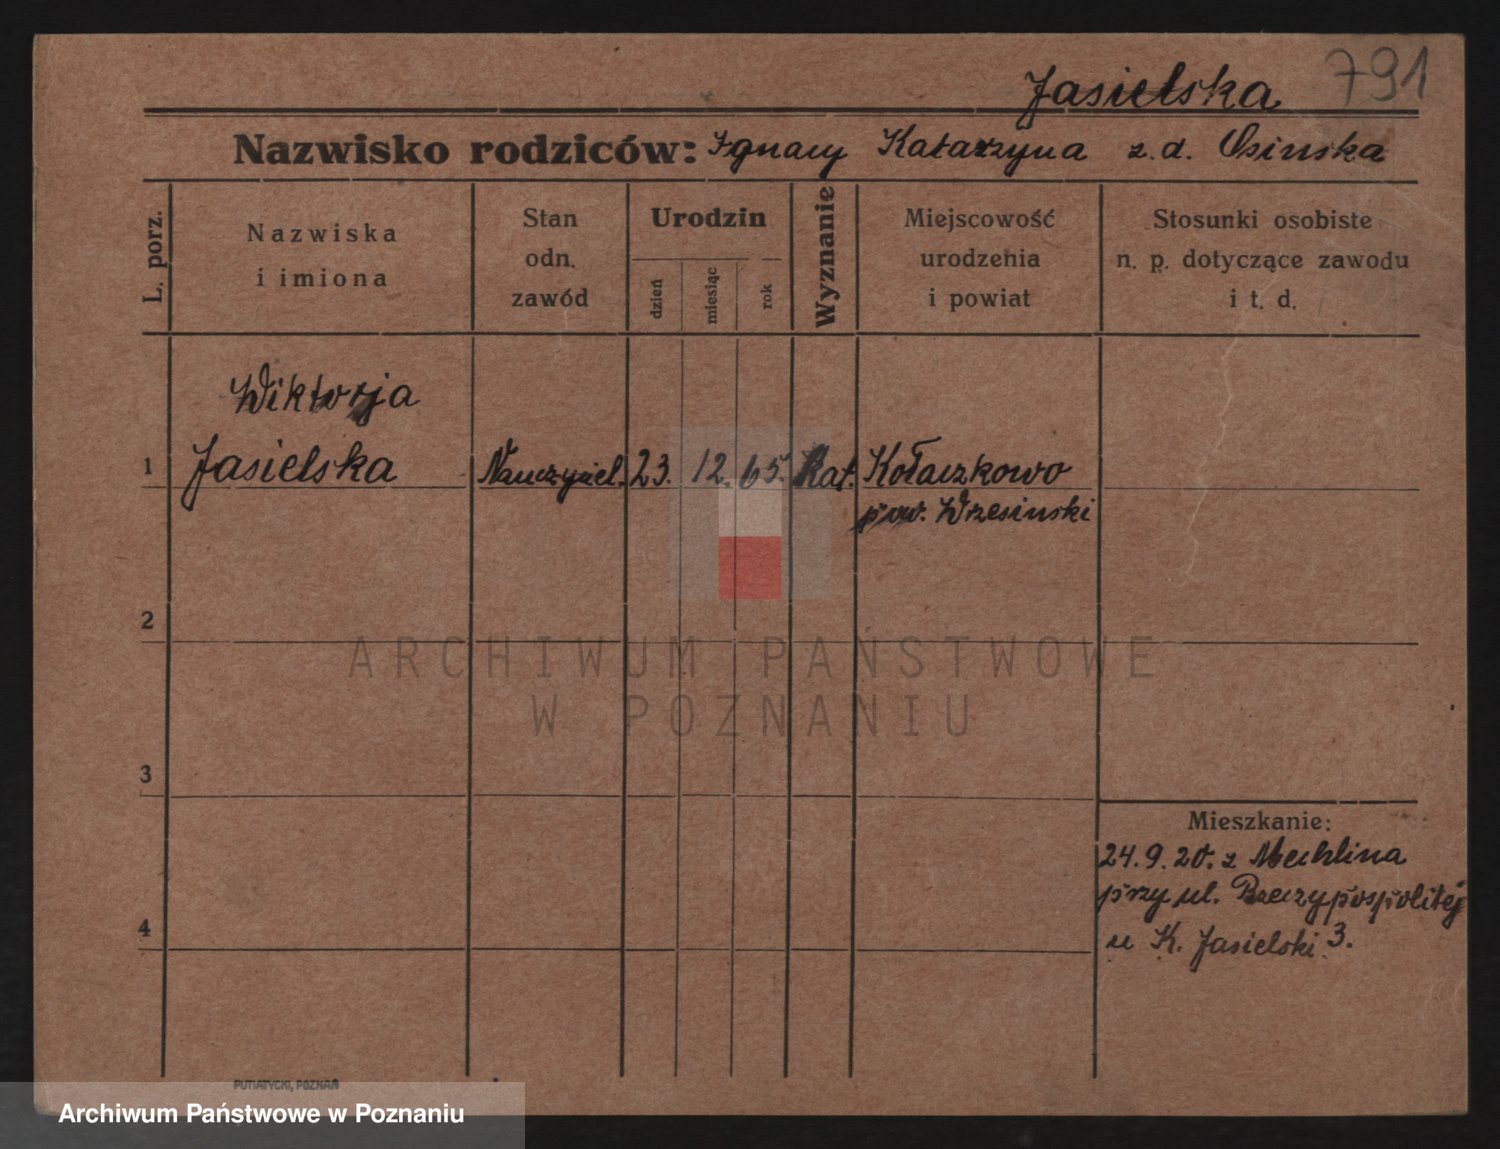 791
Jasielska
Nazwisko rodziców: Ignacy Katarzyna z.d. Osinska
L. porz.
Nazwiska
i imiona
Stan
odn.
zawód
Urodzin
dzień
miesiąc
rok
Wyznanie
Miejscowość
urodzenia
i powiat
Stosunki osobiste
n. p. dotyczące zawodu
i t. d.
Wiktorja
1 Jasielska Nauczyciel. 23. 12. 65. Kat. Kołaczkowo
pow. Wrzesinski
2
ARCHIWUM PAŃSTWOWE
W POZNANIU
3
Mieszkanie:
24. 9. 20. z Mechlina
przy ul. Rzeczypospolitéj
4
u K. Jasielski 3.
PUTIATYCKI, POZNAŃ
Archiwum Państwowe w Poznaniu